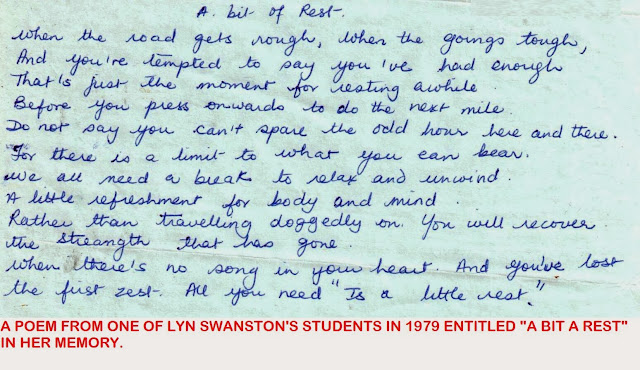 A. bit of Rest.
when the road gets rough, when the goings tough,
And you're tempted to say you've had enough
That's just the moment for resting awhile.
Before you press onwards to do the next mile.
Do not say you can't spare the odd hour here and there.
For there is a limit to what you can bear.
we all need a break to relax and unwind.
A little refreshment for body and mind.
Rather than travelling doggedly on. You will recover.
the streangth that has gone.
when there's no song in your heart. And you've lost
the first zest. All you need "Is a little rest."
A POEM FROM ONE OF LYN SWANSTON'S STUDENTS IN 1979 ENTITLED "A BIT A REST"
IN HER MEMORY.